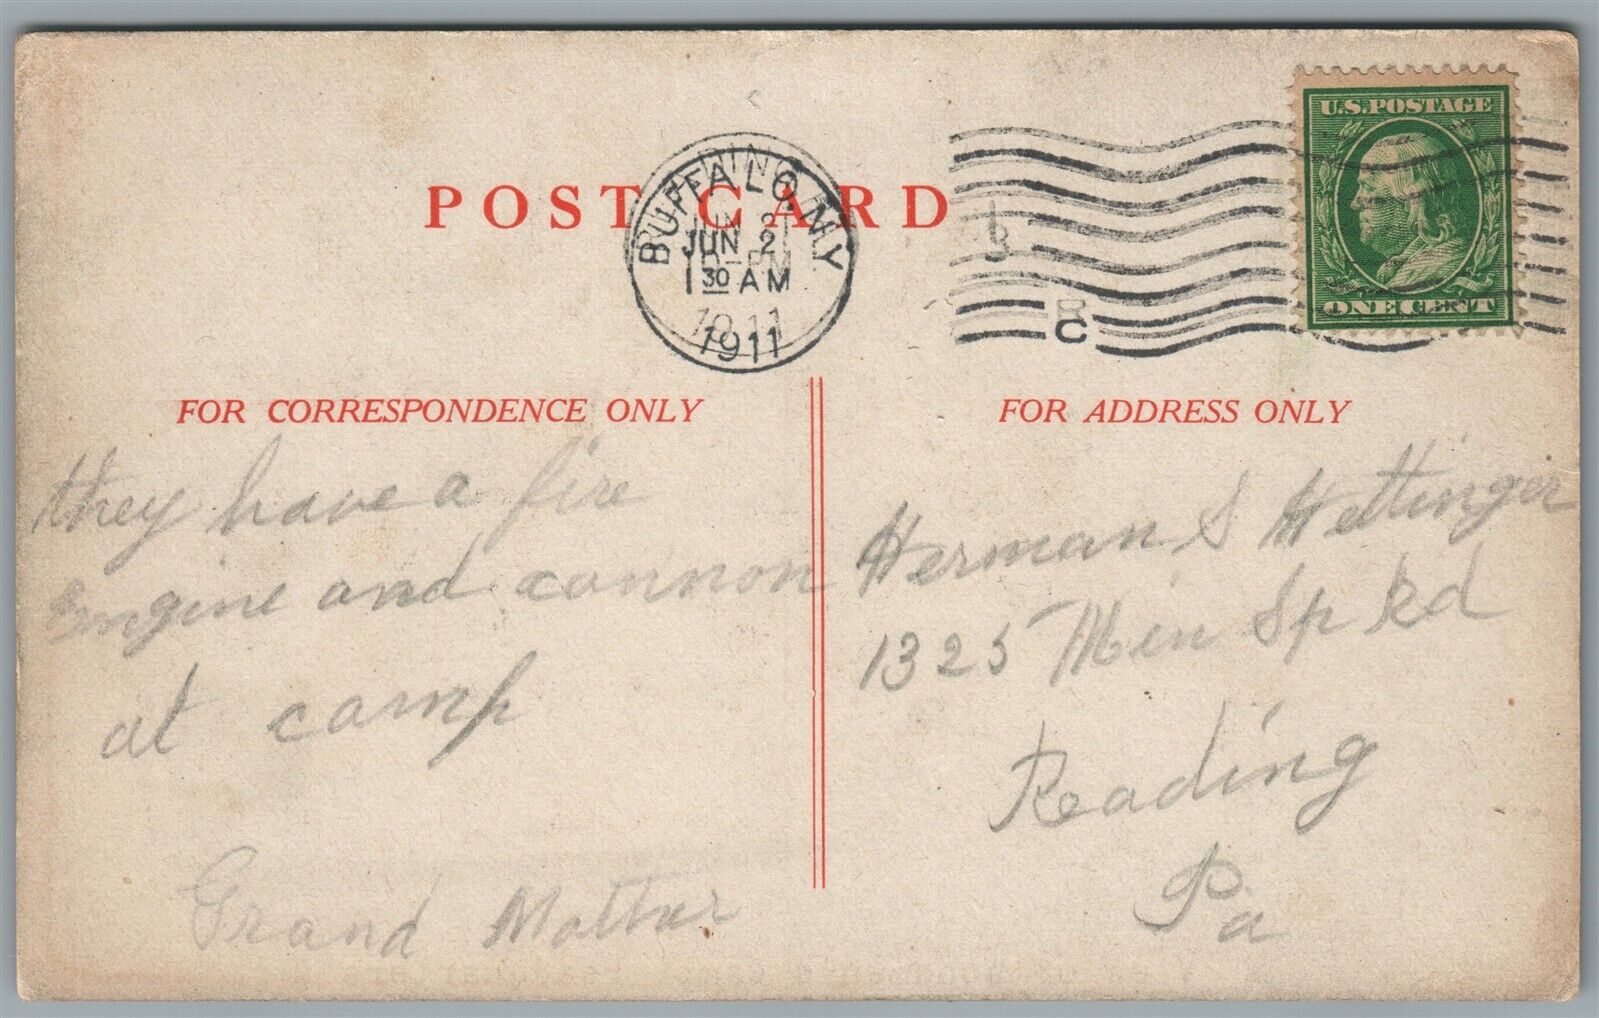 U.S. POSTAGE
ONE CENT
POST CARD
BUFFALO, N.Y.
JUN 2
1 30 AM
1911
C
FOR CORRESPONDENCE ONLY
they have a fire
Engine and cannon
at camp
Grand Mother
FOR ADDRESS ONLY
Herman S Hettinger
1325 Min Sp Rd
Reading
Pa